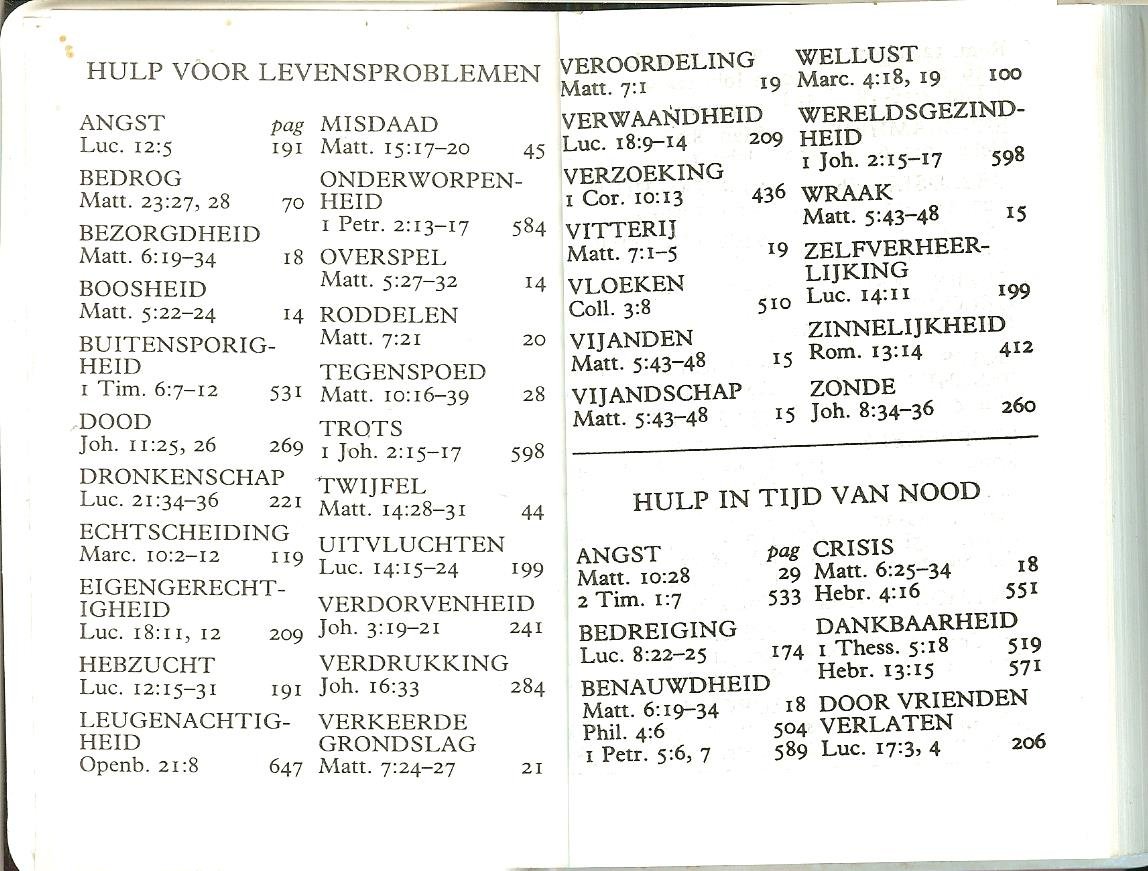 HULP VOOR LEVENSPROBLEMEN
ANGST pag
Luc. 12:5 191
BEDROG
Matt. 23:27, 28 70
BEZORGDHEID
Matt. 6:19–34 18
BOOSHEID
Matt. 5:22–24 14
BUITENSPORIG-
HEID
1 Tim. 6:7–12 531
DOOD
Joh. 11:25, 26 269
DRONKENSCHAP
Luc. 21:34–36 221
ECHTSCHEIDING
Marc. 10:2–12 119
EIGENGERECHT-
IGHEID
Luc. 18:11, 12 209
HEBZUCHT
Luc. 12:15–31 191
LEUGENACHTIG-
HEID
Openb. 21:8 647
MISDAAD
Matt. 15:17–20 45
ONDERWORPEN-
HEID
1 Petr. 2:13–17 584
OVERSPEL
Matt. 5:27–32 14
RODDELEN
Matt. 7:21 20
TEGENSPOED
Matt. 10:16–39 28
TROTS
1 Joh. 2:15–17 598
TWIJFEL
Matt. 14:28–31 44
UITVLUCHTEN
Luc. 14:15–24 199
VERDORVENHEID
Joh. 3:19–21 241
VERDRUKKING
Joh. 16:33 284
VERKEERDE
GRONDSLAG
Matt. 7:24–27 21
VEROORDELING
Matt. 7:1 19
VERWAANDHEID
Luc. 18:9–14 209
VERZOEKING
1 Cor. 10:13 436
VITTERIJ
Matt. 7:1–5 19
VLOEKEN
Coll. 3:8 510
VIJANDEN
Matt. 5:43–48 15
VIJANDSCHAP
Matt. 5:43–48 15
WELLUST
Marc. 4:18, 19 100
WERELDSGEZIND-
HEID
1 Joh. 2:15–17 598
WRAAK
Matt. 5:43–48 15
ZELFVERHEER-
LIJKING
Luc. 14:11 199
ZINNELIJKHEID
Rom. 13:14 412
ZONDE
Joh. 8:34–36 260
HULP IN TIJD VAN NOOD
ANGST pag
Matt. 10:28 29
2 Tim. 1:7 533
BEDREIGING
Luc. 8:22–25 174
BENAUWDHEID
Matt. 6:19–34 18
Phil. 4:6 504
1 Petr. 5:6, 7 589
CRISIS
Matt. 6:25–34 18
Hebr. 4:16 551
DANKBAARHEID
1 Thess. 5:18 519
Hebr. 13:15 571
DOOR VRIENDEN
VERLATEN
Luc. 17:3, 4 206